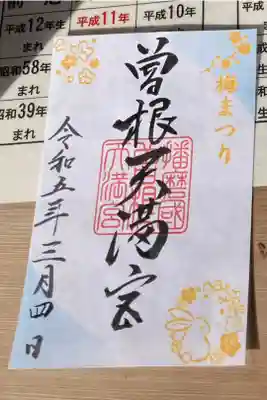 平成12年生
まれ
平成11年
平成10年
昭和58年
まれ
昭和39年
まれ
梅まつり
曽根天満宮
播磨國
天満宮
令和五年三月四日